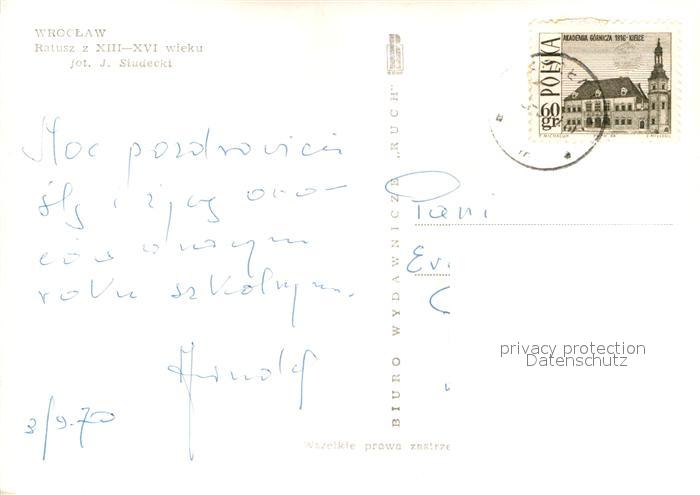 WROCŁAW
Ratusz z XIII—XVI wieku
fot. J. Siudecki
Moc pozdrowień
ślę i życzę owo-
ców w nowym
roku szkolnym.
Arnold
3/9.70
BIURO WYDAWNICZE „RUCH"
Wszelkie prawa zastrze
AKADEMIA GÓRNICZA 1816 - KIELCE
POLSKA
60 gr
Pani
privacy protection
Datenschutz